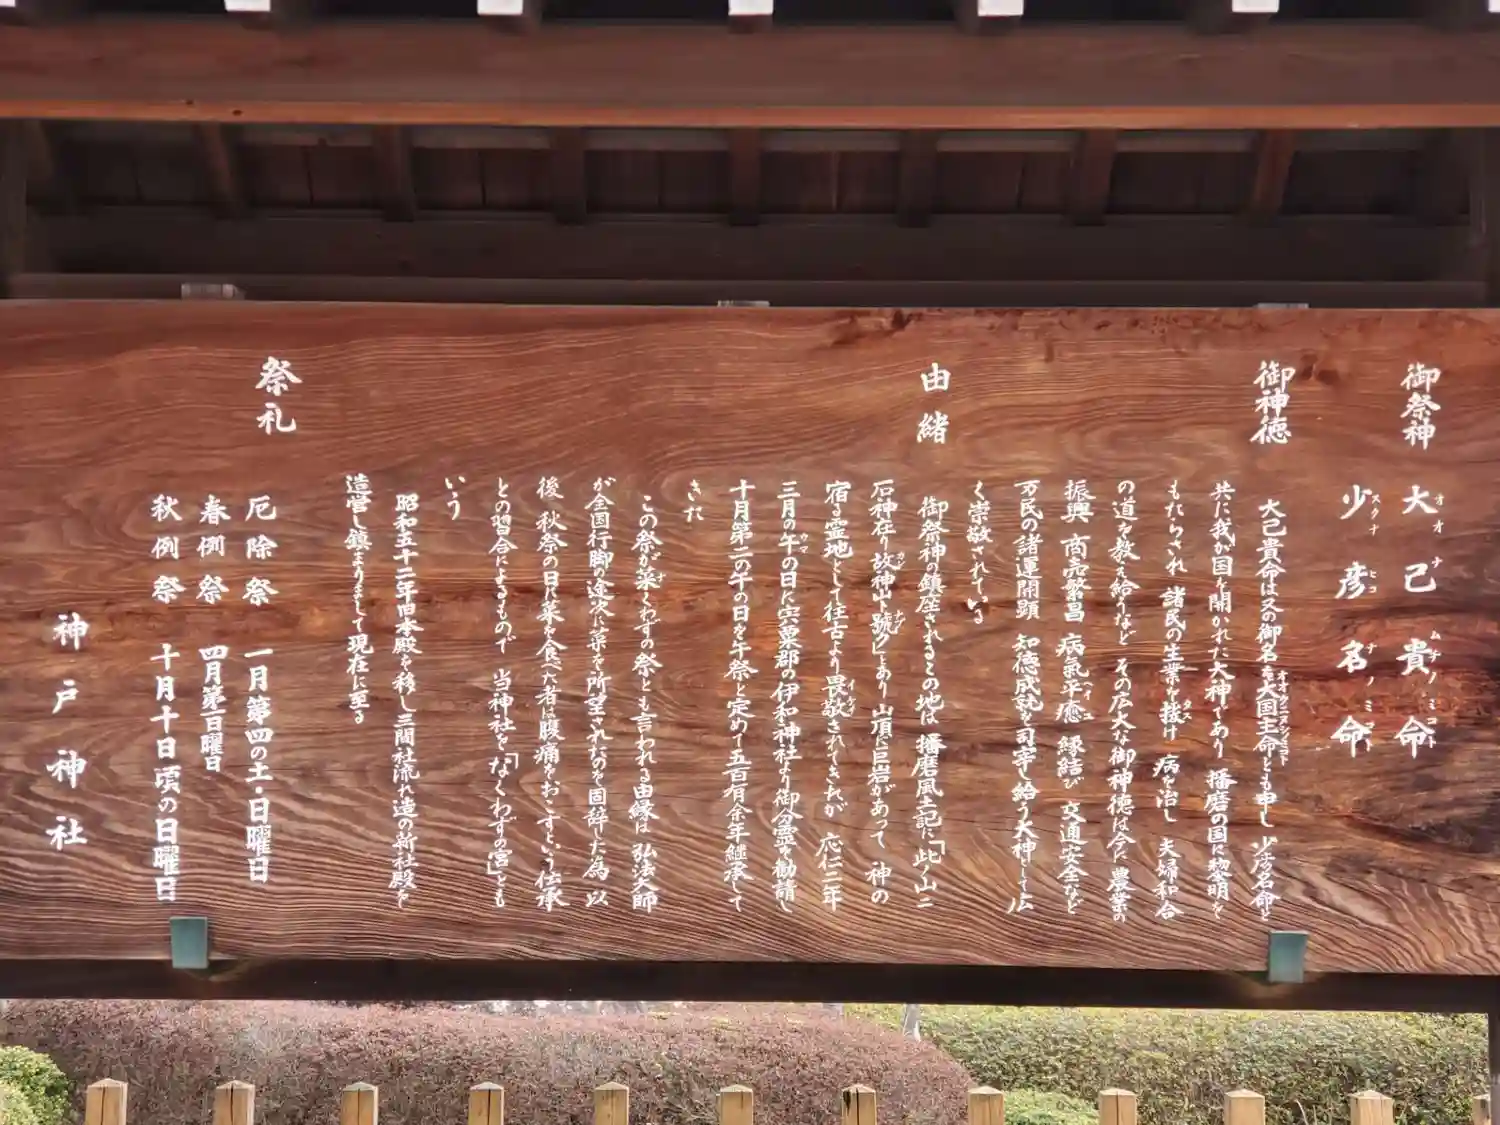 御祭神
大己貴命
オオナムチノミコト
少彦名命
スクナヒコナノミコト
御神徳
大己貴命は又の御名を大国主命とも申し 少彦名命と
オオクニヌシノミコト
共に我が国を開かれた大神であり 播磨の国に黎明を
もたらされ 諸民の生業を扶け 病を治し 夫婦和合
タス
の道を教え給うなど その広大な御神徳は今に 農業の
振興 商売繁昌 病氣平癒 縁結び 交通安全など
万民の諸運開顕 知徳成就を司宰し給う大神として広
く崇敬されている
由緒
御祭神の鎮座されるこの地は 播磨風土記に「此ノ山ニ
石神在り故神山ト號ク」とあり 山頂に巨岩があって 神の
宿る霊地として往古より畏敬されてきたが 応仁二年
三月の午の日に宍粟郡の伊和神社より御分霊を勧請し
ウマ
十月第二の午の日を午祭と定めて五百有余年継承して
きた
この祭が菜くわずの祭とも言われる由縁は 弘法大師
ナ
が全国行脚の途次に菜を所望されたのを固辞した為 以
後 秋祭の日に菜を食べた者は腹痛をおこすという伝承
との習合によるもので 当神社を「なくわずの宮」とも
いう
昭和五十二年旧本殿を移し三間社流れ造の新社殿を
造営し鎮まりまして現在に至る
祭礼
厄除祭 一月第四の土・日曜日
春例祭 四月第一日曜日
秋例祭 十月十日頃の日曜日
神戸神社